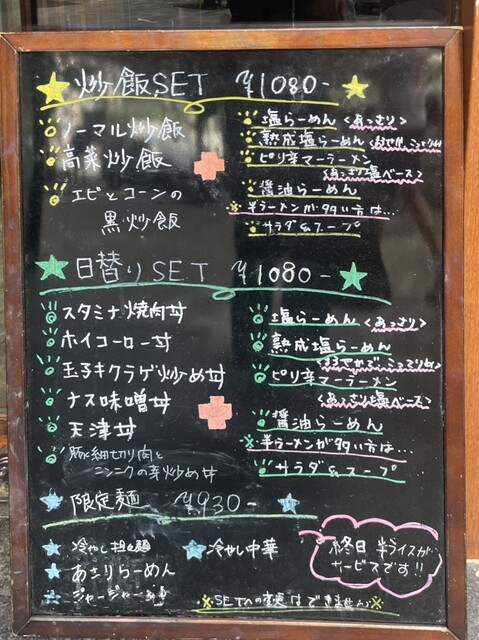 炒飯SET ¥1080-
ノーマル炒飯
高菜炒飯
エビとコーンの
黒炒飯
塩らーめん <あっさり>
熟成塩らーめん
ピリ辛マーラーメン
<あっさり塩ベース>
醤油らーめん
※半ラーメンが多い方は…
サラダ&スープ
日替りSET ¥1080-
スタミナ焼肉丼
ホイコーロー丼
玉子キクラゲ炒め丼
ナス味噌丼
天津丼
豚細切り肉と
ニンニクの辛炒め丼
塩らーめん <あっさり>
熟成塩らーめん
<まろやかでこってり
ピリ辛マーラーメン
<あっさり塩ベース>
醤油らーめん
※半ラーメンが多い方は…
サラダ&スープ
限定麺 ¥930-
冷やし担々麺
あさりらーめん
ジャージャー麺
冷やし中華
終日 半ライスが
サービスです!!
※SETへの変更はできません※